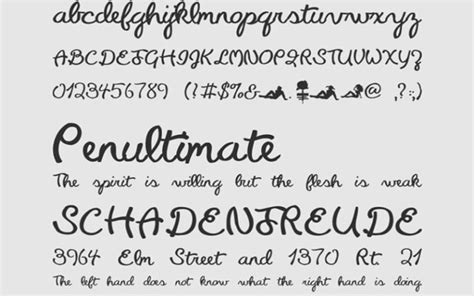 abcdefghijklmnopqrstuvwxyz
ABCDEFGHIJKLMNOPQRSTUVWXYZ
0123456789 (!#$%& . @ ,?:;)
Penultimate
The spirit is willing but the flesh is weak
SCHADENFREUDE
3964 Elm Street and 1370 Rt. 21
The left hand does not know what the right hand is doing